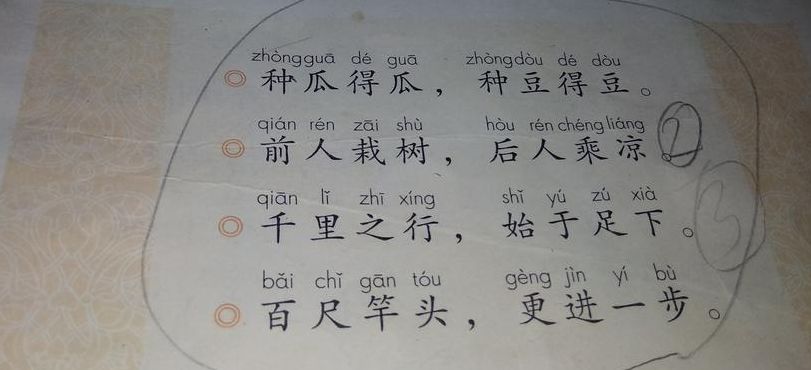 zhòngguā dé guā zhòngdòu dé dòu
◎ 种瓜得瓜，种豆得豆。
qián rén zāi shù hòu rén chéngliáng
◎ 前人栽树，后人乘凉。②
qiān lǐ zhī xíng shǐ yú zú xià
◎ 千里之行，始于足下。③
bǎi chǐ gān tóu gèng jìn yí bù
◎ 百尺竿头，更进一步。